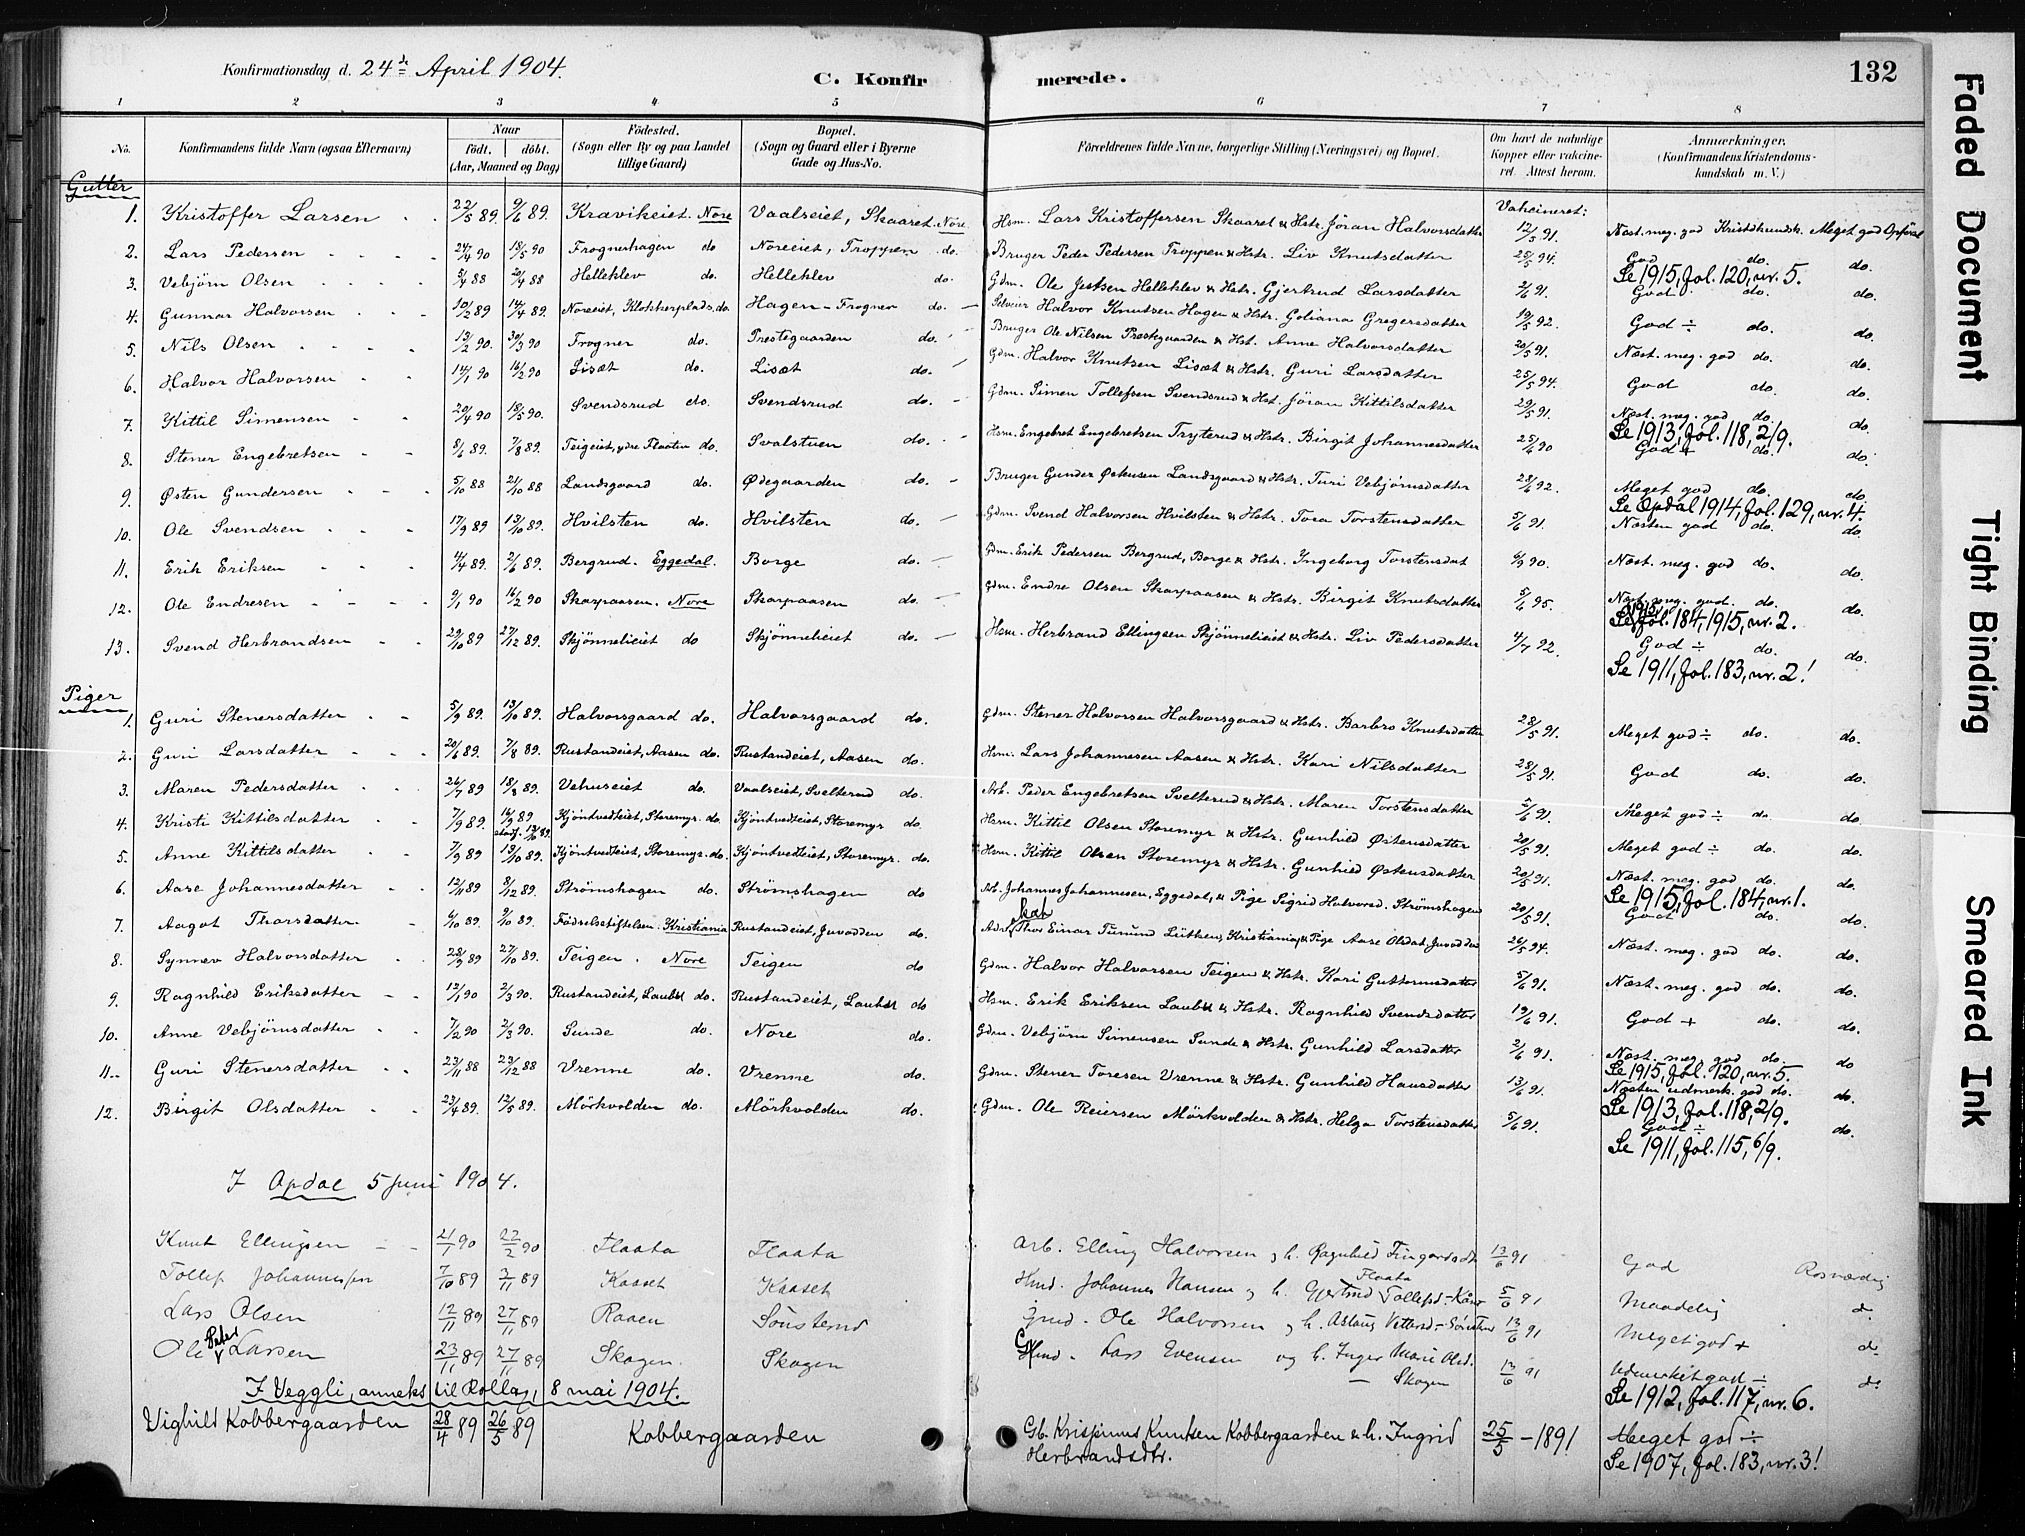 Konfirmationsdag d. 24de April 1904. C. Konfirmerede. 132
1 2 3 4 5 6 7 8
No. Konfirmandens fulde Navn (ogsaa Efternavn) Naar født. døbt. (Aar, Maaned og Dag) Fødested. (Sogn eller By og paa Landet tillige Gaard) Bopæl. (Sogn og Gaard eller i Byerne Gade og Hus-No. Forældrenes fulde Navne, borgerlige Stilling (Næringsvei) og Bopæl. Om havt de naturlige Kopper eller vakcineret. Attest herom. Anmærkninger. (Konfirmandens Kristendomskundskab m. V.)
Gutter
Vakcineret:
1. Kristoffer Larsen 22/5 89. 9/6 89. Kravikeiet. Nore Vaalseiet, Skaaret. Nore Hsm. Lars Kristoffersen Skaaret & Hstr. Jöran Halvorsdatter 12/5 91. Næst. meg. god Kristdkundsk. Meget god Opførsel
2. Lars Pedersen 24/4 90 18/5 90 Frognerhagen do Noreeiet, Troppen do. Bruger Peder Pedersen Troppen & Hstr. Liv Knutsdatter 25/5 94. God do. do.
Se 1915, fol. 120, nr. 5.
3. Vebjörn Olsen 5/4 88 2/4 88 Helleklev do. Helleklev do. Gdm. Ole Jestsen Helleklev & Hstr. Gjertrud Larsdatter 2/6 91. God do. do.
4. Gunnar Halvorsen 10/2 89 14/4 89. Noreeiet, Klokkerplads. do. Hagen - Frogner do. Selveier Halvor Knutsen Hagen & Hstr. Goliana Gregersdatter 19/5 92. God ÷ do. do.
5. Nils Olsen 13/2 90. 30/3 90 Frogner do. Prestegaarden do. Bruger Ole Nilsen Prestegaarden & Hst. Anne Halvorsdatter 20/5 91. Næst. meg. god do. do.
6. Halvor Halvorsen 14/1 90 16/2 90 Lisæt do. Lisæt do. Gdm. Halvor Knutsen Lisæt & Hstr. Guri Larsdatter 25/5 94. God do. do.
7. Kittil Simensen 20/4 90 18/5 90. Svendsrud do. Svendsrud do. Gdm. Simen Tollefsen Svendsrud & Hst. Jöran Kittilsdatter 29/5 91. Næst. meg. god do. do.
Se 1913, fol. 118, 2/9.
8. Stener Engebretsen 8/6 89. 7/8 89. Teigeiet, ydre Flaaten do. Svalstuen do. Hsm. Engebret Engebretsen Tryterud & Hstr. Birgit Johannesdatter 25/6 90 God + do. do.
9. Østen Gundersen 5/10 88 21/10 88 Landsgaard do. Ødegaarden do. Bruger Gunder Østensen Landsgaard & Hstr. Turi Vebjörnsdatter 28/6 92. Meget god do. do.
Se Opdal 1914, fol. 129, nr. 4.
10. Ole Svendsen 17/9 89 13/10 89. Hvilsten do. Hvilsten do. Gdm. Svend Halvorsen Hvilsten & Hstr. Tora Torstensdatter 5/6 91. Næsten god do. do.
11. Erik Eriksen 4/4 89. 2/6 89. Bergrud. Eggedal. Borge do. Gdm. Erik Pedersen Bergrud, Borge & Hstr. Ingeborg Torstensdat 6/9 90. Næst. meg. god do. do.
12. Ole Endresen 9/1 90 16/2 90 Skarpaasen. Nore Skarpaasen do. Gdm. Endre Olsen Skarpaasen & Hstr. Birgit Knutsdatter 5/6 95. Næst. meg. god. do. do.
Se fol. 184, 1915, nr. 2.
13. Svend Herbrandsen 29/10 89 27/12 89. Skjönnelieiet do Skjönnelieiet do. Hsm. Herbrand Ellingsen Skjönnelieiet & Hstr. Liv Pedersdatter 4/7 92. God ÷ do. do.
Se 1911, fol. 183, nr. 2!
Piger
1. Guri Stenersdatter 5/9 89. 13/10 89. Halvorsgaard do. Halvorsgaard do. Gdm. Stener Halvorsen Halvorsgaard & Hstr. Barbro Knutsdatter 28/5 91. Meget god ÷ do. do.
2. Guri Larsdatter 20/6 89. 7/8 89. Rustandeiet, Aasen do. Rustandeiet, Aasen do. Hsm. Lars Johannesen Aasen & Hstr. Kari Nilsdatter 28/5 91. God do. do.
3. Maren Pedersdatter 26/7 89 18/8 89. Vehuseiet do. Vaalseiet, Svelterud do. Arb. Peder Engebretsen Svelterud & Hstr. Maren Torstensdatter 2/6 91. Meget god ÷ do. do.
4. Kristi Kittilsdatter 7/9 89. 14/9 89 Kjöntvedteiet, Storemyr. do. Kjöntvedteiet, Storemyr do. Hsm. Kittil Olsen Storemyr & Hstr. Gunhild Østensdatter 20/5 91. Meget god ÷ do. do.
5. Anne Kittilsdatter 7/9 89 13/10 89. Kjöntvedteiet, Storemyr. do. Kjöntvedteiet, Storemyr. do. Hsm. Kittil Olsen Storemyr & Hstr. Gunhild Østensdatter 20/5 91. Næst. meg. god do. do.
Se 1915, fol. 184, nr. 1.
6. Aase Johannesdatter 12/11 89 8/12 89. Strömshagen do. Strömshagen do Arb. Johannes Johannesen, Eggedal, & Pige Sigrid Halvorsd. Strömshagen 20/5 91. God do. do.
7. Aagot Thorsdatter 4/10 89 9/10 89. Födselsstiftelsen. Kristiania Rustandeiet, Juvodden do. Thor Einar Lütken, Kristiania, & Pige Aase Olsdat, Juvodden 26/5 94. Næst. meg. god do. do.
8. Synnev Halvorsdatter 28/9 89 27/10 89. Teigen. Nore Teigen do Gdm. Halvor Halvorsen Teigen & Hstr. Kari Guttormsdatter 5/6 91. Næst. meg. god do. do.
9. Ragnhild Eriksdatter 12/1 90 2/3 90. Rustandeiet, do. Rustandeiet, do Hsm. Erik Eriksen & Hstr. Ragnhild Svendsdatter 19/6 91. God + do. do.
10. Anne Vebjörnsdatter 7/2 90 2/3 90. Sunde do. Nore do. Gdm. Vebjörn Simensen Sunde & Hstr. Gunhild Larsdatter 2/6 91. Næst. meg. god do. do
Se 1915, fol. 120, nr. 5.
11. Guri Stenersdatter 23/11 88 23/12 88 Vrenne do. Vrenne do. Gdm. Stener Toresen Vrenne & Hstr. Gunhild Hansdatter 13/6 91. Næsten udmærk. god do. do.
Se 1913, fol. 118, 2/9.
12. Birgit Olsdatter 23/4 89. 12/5 89. Mörkvolden do. Mörkvolden do. Gdm. Ole Reiersen Mörkvolden & Hstr. Helga Torstensdatter 5/6 91. God ÷ do.
Se 1911, fol. 115, 6/9.
I Opdal 5 juni 1904.
Knut Ellingsen 21/1 90 22/2 90 Flaata Flaata Arb. Elling Halvorsen og h. Ragnhild Fingarsdt Flaata 13/6 91 God Rosværdig
Tollef Johannessen 7/10 89 3/11 89 Kaaset Kaaset Hmd. Johannes Hansen og h. Gjertrud Tollefsd. 5/6 91 Maadelig d.
Lars Olsen 12/11 89 27/11 89 Raaen Sönsterud Gmd. Ole Halvorsen og h. Aslaug 13/6 91 Meget god + d.
Ole Peder Larsen 23/11 89 27/11 89 Skogen. Skogen Gmd. Lars Evensen og h. Inger Marie Olsd. — Skogen 13/6 91 Udmærket god ÷ d.
Se 1912, fol. 117, nr. 6.
I Veggli, anneks til Rollag, 8 mai 1904.
Vighild Kobbergaarden 28/4 89 26/5 89 Kobbergaarden Gb. Krispinus Knutsen Kobbergaarden & h. Ingrid Herbrandsdtr. 25/5 - 1891 Meget god ÷
Se 1907, fol. 183, nr. 3!
Faded Document
Tight Binding
Smeared Ink